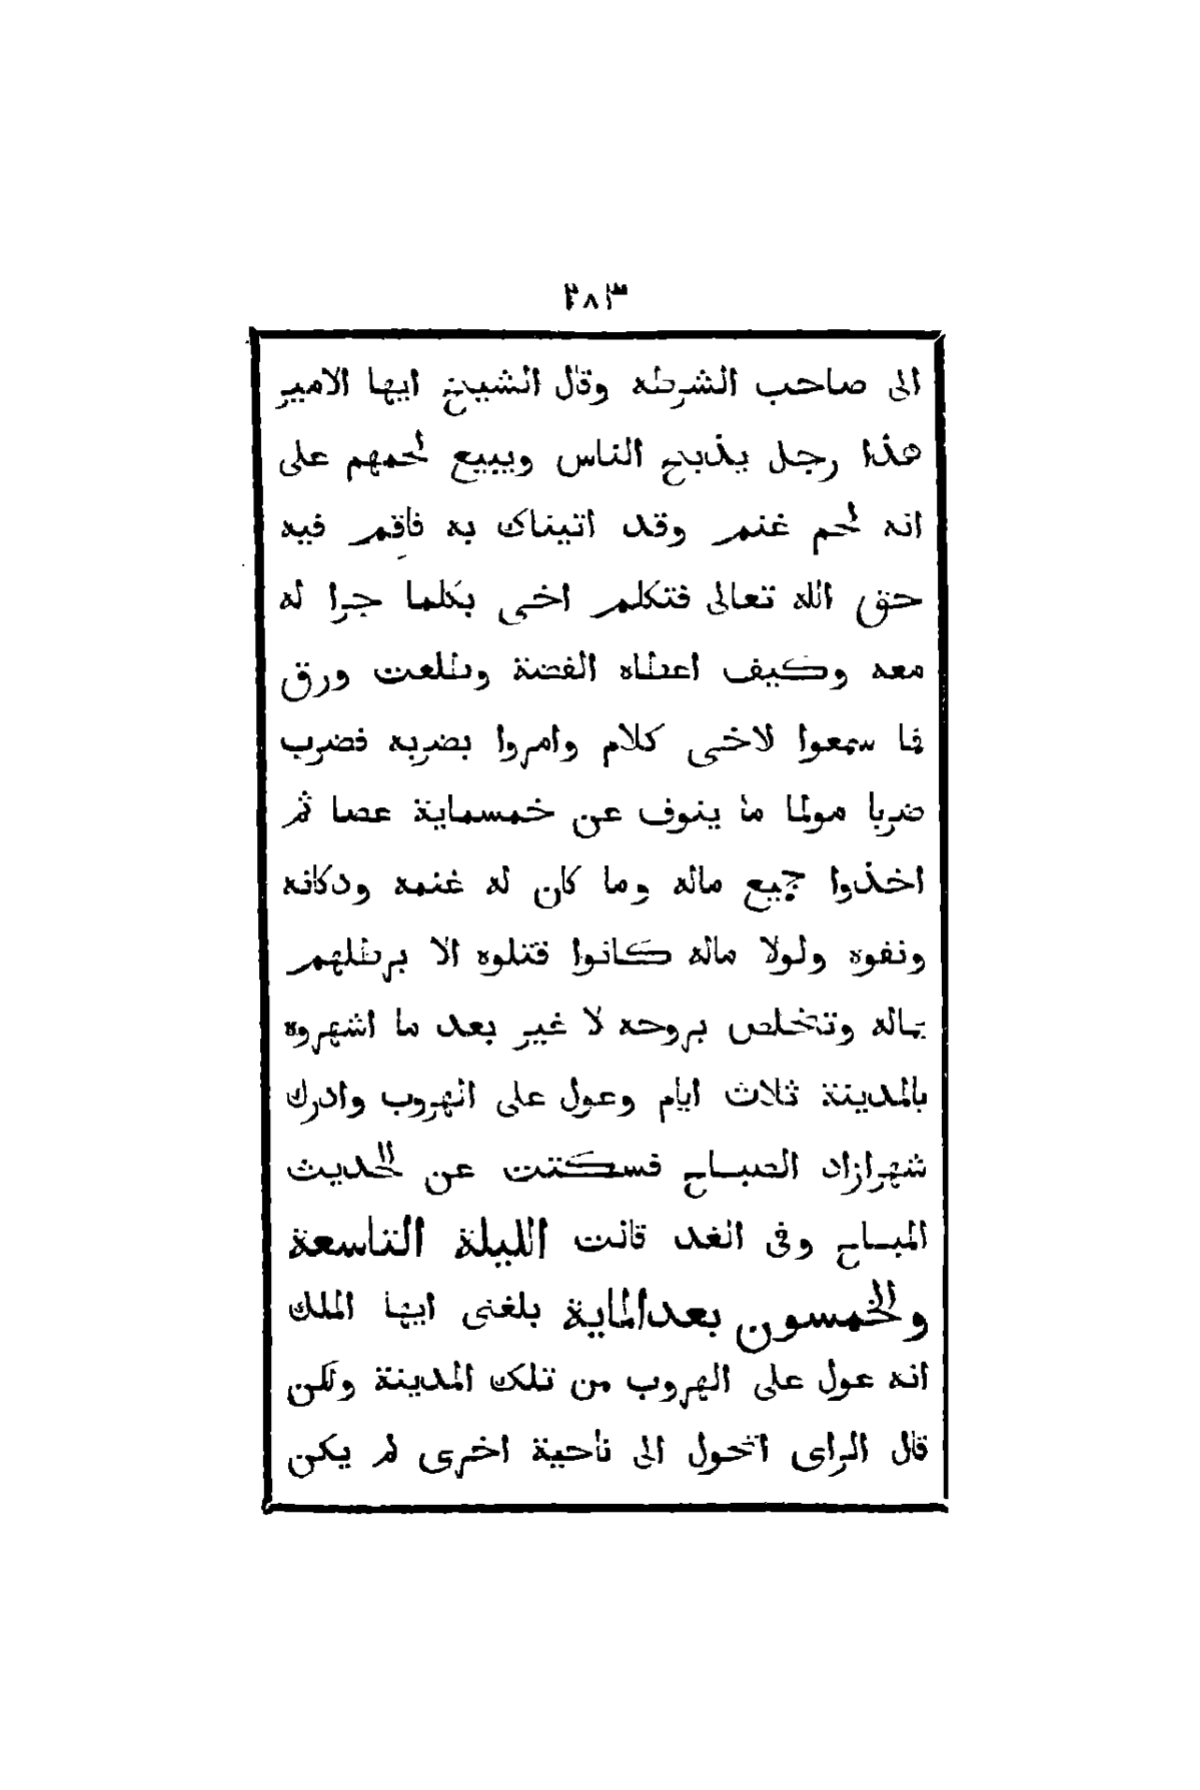 ٢٨٣
الى صاحب الشرطه وقال الشيخ ايها الامير
هذا رجل يذبح الناس ويبيع لحمهم على
انه لحم غنم وقد اتيناك به فاقم فيه
حق الله تعالى فتكلم اخى بكلما جرا له
معه وكيف اعطاه الفضة وطلعت ورق
فما سمعوا لاخى كلام وامروا بضربه فضرب
ضربا مولما ما ينوف عن خمسماية عصا ثم
اخذوا جميع ماله وما كان له غنمه ودكانه
ونفوه ولولا ماله كانوا قتلوه الا برطلهم
بماله وتخلص بروحه لا غير بعد ما اشهروه
بالمدينة ثلاث ايام وعول على الهروب وادرك
شهرازاد الصباح فسكتت عن الحديث
المباح وفى الغد قالت الليلة التاسعة
والخمسون بعدالماية بلغنى ايها الملك
انه عول على الهروب من تلك المدينة ولكن
قال الراى اتحول الى ناحية اخرى لم يكن